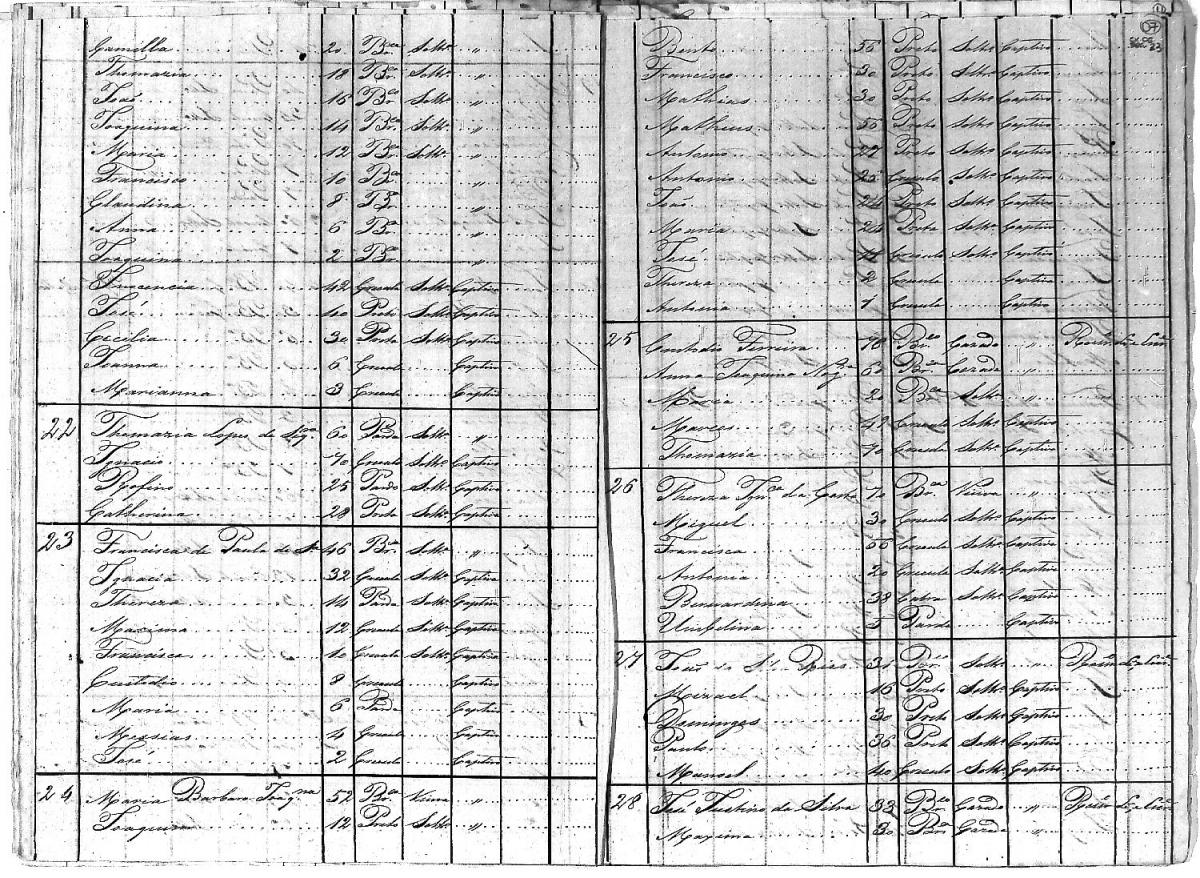 Camilla 20 Br.ca Solt.ra "
Thomazia 18 Br.ca Solt.ra "
João 16 Br.co Solt.ro "
Joaquina 14 Br.ca Solt.ra "
Maria 12 Br.ca Solt.ra "
Francisco 10 Br.co "
Claudina 8 Br.ca "
Anna 6 Br.ca "
Joaquina 2 Br.ca "
Innocencia 42 Creoula Solt.ra Captiva
José 40 Preto Solt.ro Captivo
Cecilia 30 Preta Solt.ra Captiva
Joanna 6 Creoula Captiva
Marianna 3 Creoula Captiva
22 Thomazia Lopes de 60 Parda Solt.ra "
Ignacio 70 Creoulo Solt.ro Captivo
Rofino 25 Pardo Solt.ro Captivo
Catherina 28 Preta Solt.ra Captiva
23 Francisca de Paula de 46 Br.ca Solt.ra "
Ignacia 32 Creoula Solt.ra Captiva
Thereza 14 Parda Solt.ra Captiva
12 Creoula Solt.ra Captiva
Francisca 10 Creoula Solt.ra Captiva
Custodio 8 Creoulo Captivo
Maria 6 Parda Captiva
Messias 4 Creoulo Captivo
José 2 Creoulo Captivo
24 Maria Barbara 52 Br.ca Viuva "
Joaquim 12 Preto Solt.ro
Bento 56 Preto Solt.ro Captivo
Francisco 30 Preto Solt.ro Captivo
Mathias 30 Preto Solt.ro Captivo
Matheus 50 Preto Solt.ro Captivo
Antonio 27 Preto Solt.ro Captivo
Antonio 25 Creoulo Solt.ro Captivo
João 24 Preto Solt.ro Captivo
Maria 24 Preta Solt.ra Captiva
José 11 Creoulo Solt.ro Captivo
Thereza 2 Creoula Captiva
Antonia 1 Creoula Captiva
25 Custodio Ferreira 70 Br.co Cazado "
Anna Joaquina 60 Br.ca Cazada "
Maria 20 Br.ca Solt.ra "
Marcos 42 Creoulo Solt.ro Captivo
Thomazia 70 Creoula Solt.ra Captiva
26 Thereza da Costa 70 Br.ca Viuva "
Miguel 30 Creoulo Solt.ro Captivo
Francisca 56 Creoula Solt.ra Captiva
Antonia 20 Creoula Solt.ra Captiva
Bernardina 38 Cabra Solt.ra Captiva
Umbelina 5 Parda Captiva
27 João de 31 Br.co Solt.ro "
Mizael 16 Preto Solt.ro Captivo
Domingos 30 Preto Solt.ro Captivo
Paulo 36 Preto Solt.ro Captivo
Manoel 40 Creoulo Solt.ro Captivo
28 José da Silva 33 Br.co Cazado "
Maxima 30 Br.ca Cazada "